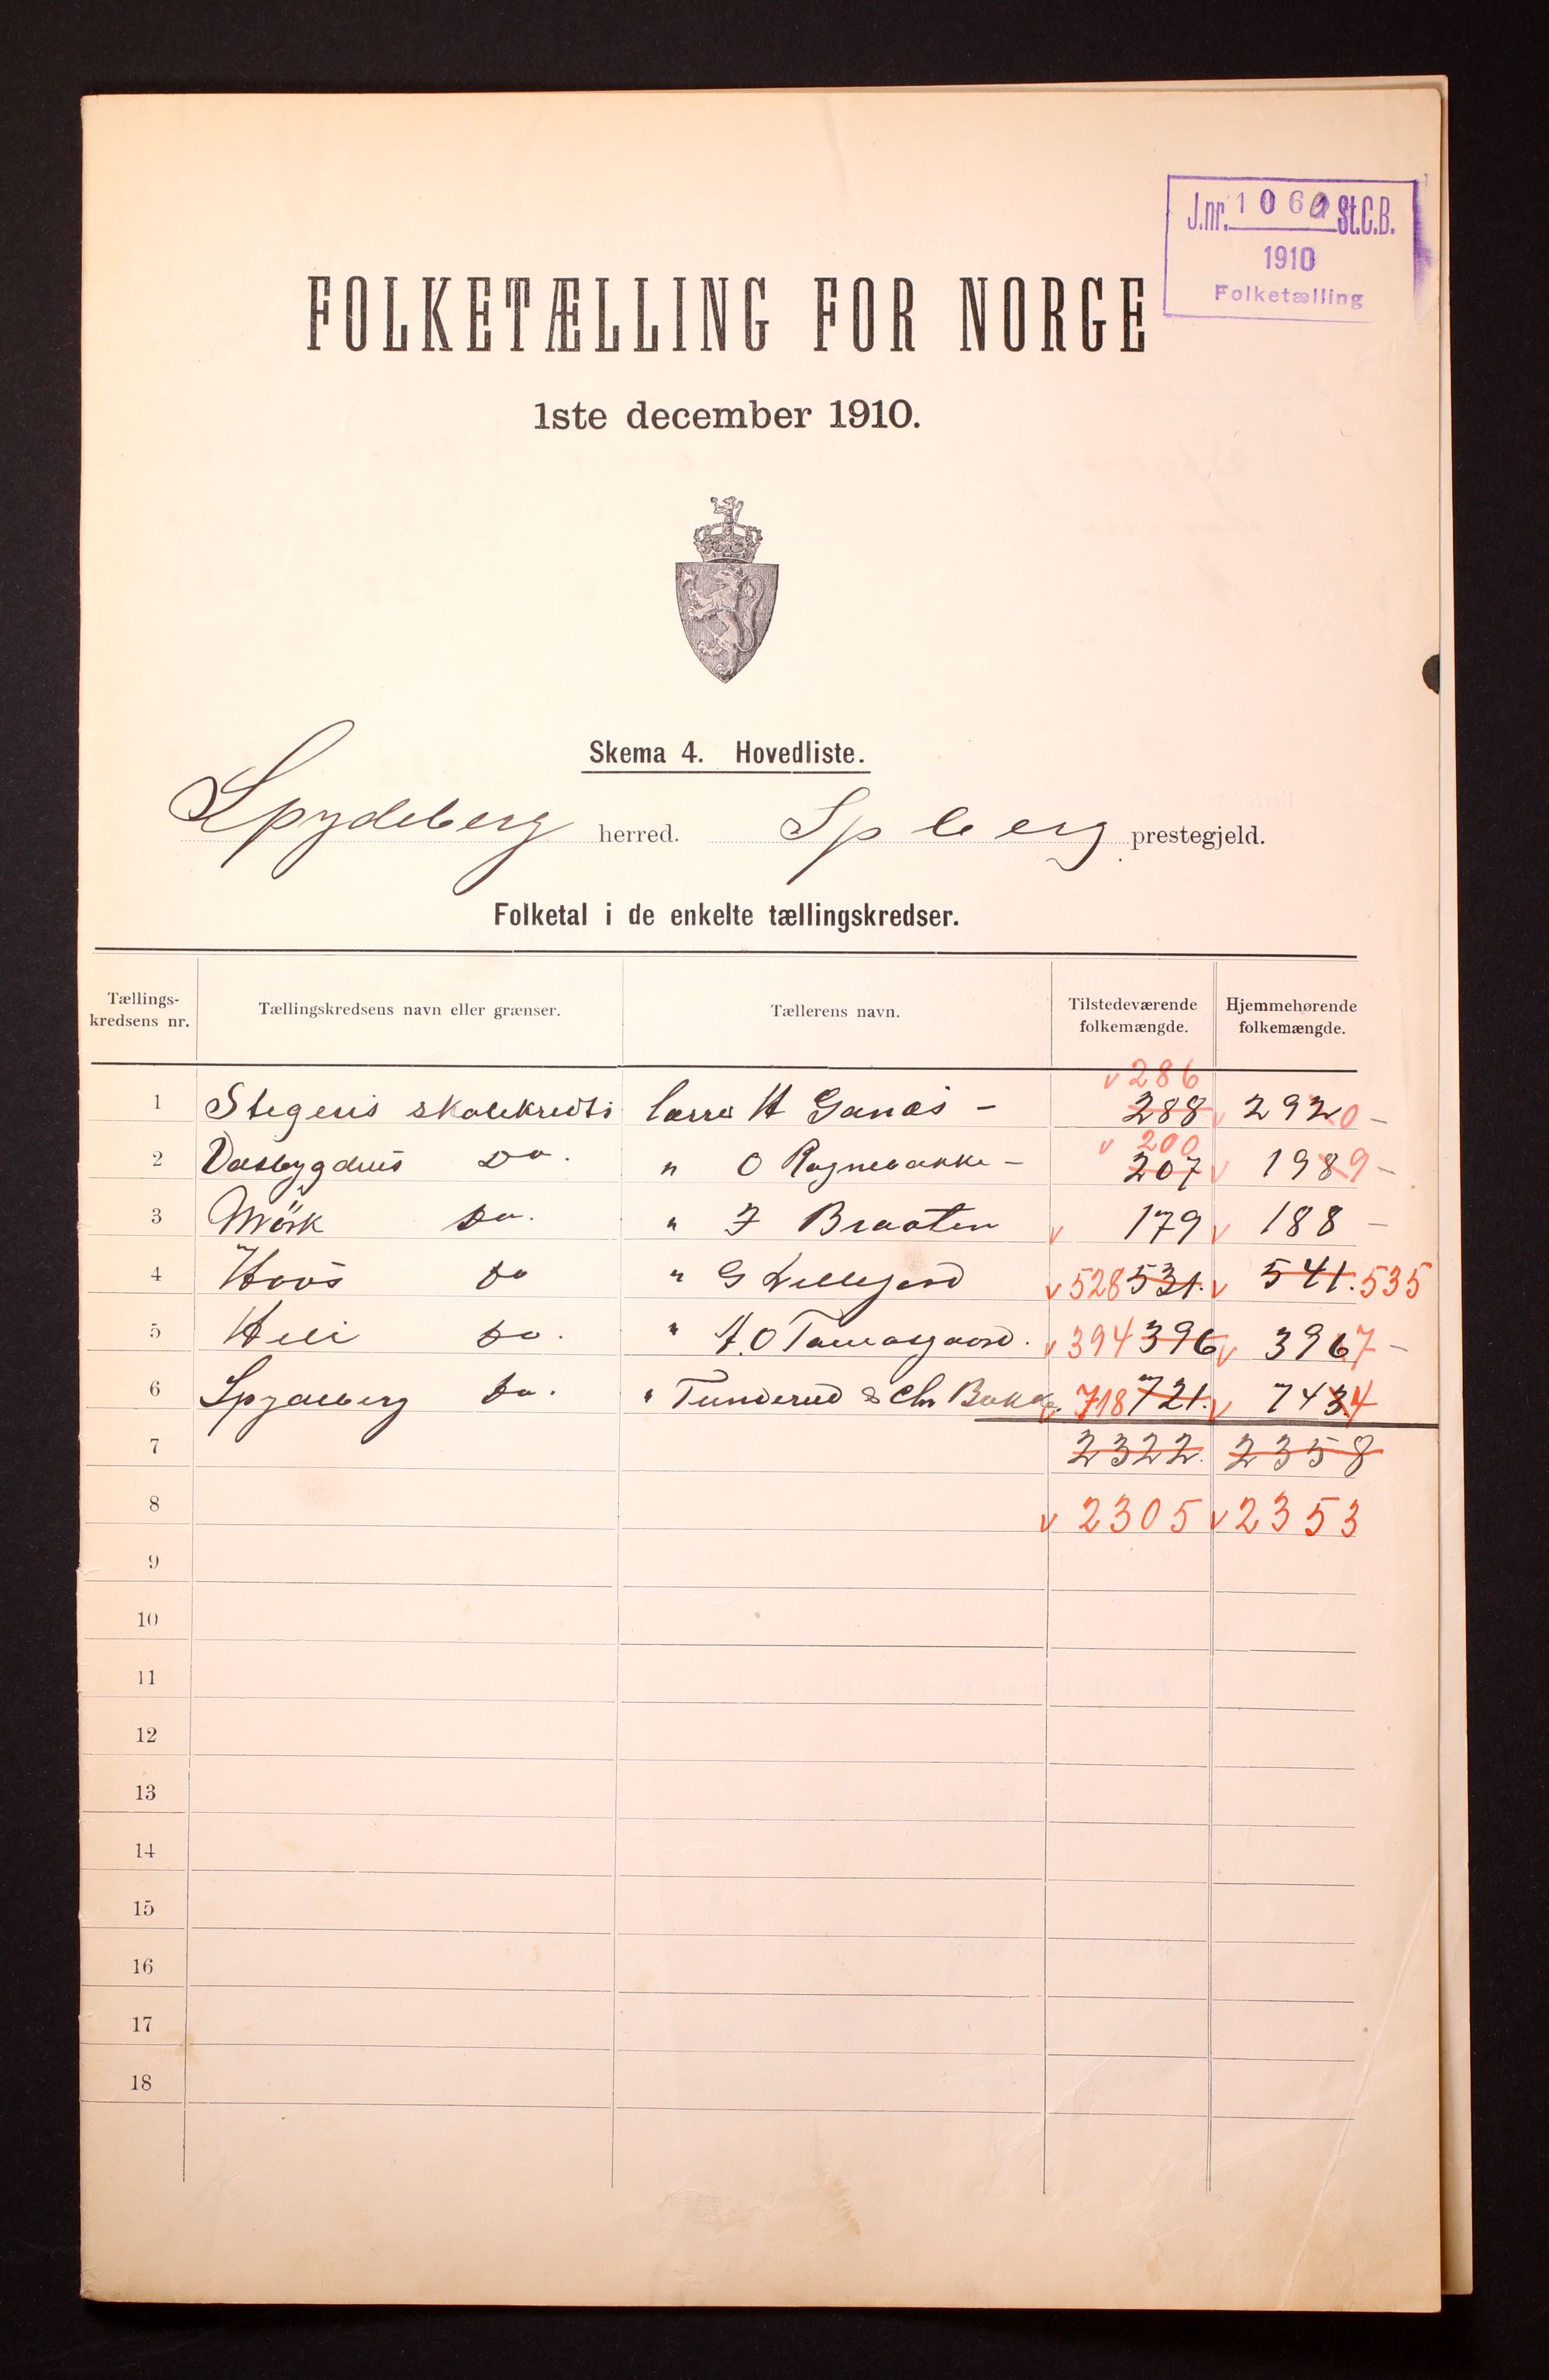 J.nr. 1060 St.C.B.
1910
Folketælling
FOLKETÆLLING FOR NORGE
1ste december 1910.
Skema 4. Hovedliste.
Spydeberg herred. Spberg prestegjeld.
Folketal i de enkelte tællingskredser.
Tællings-kredsens nr. Tællingskredsens navn eller grænser. Tællerens navn. Tilstedeværende folkemængde. Hjemmehørende folkemængde.
v 286
1 Stegens skolekreds lærer H Ganæs - 288 v 2920 -
v 200
2 Do. " O Ragnebakke - 207 v 1989 -
3 Mörk Do. " J Braaten v 179 v 188 -
4 Hovs Do " G Lillegard v 528 531. v 541. 535
5 Heli Do. " A.O v 394 396 v 3967 -
6 Spydeberg Do. " Tunderud & Chr Bakke. v 718 721. v 7434
7 2322. 2358
8 v 2305 v 2353
9
10
11
12
13
14
15
16
17
18